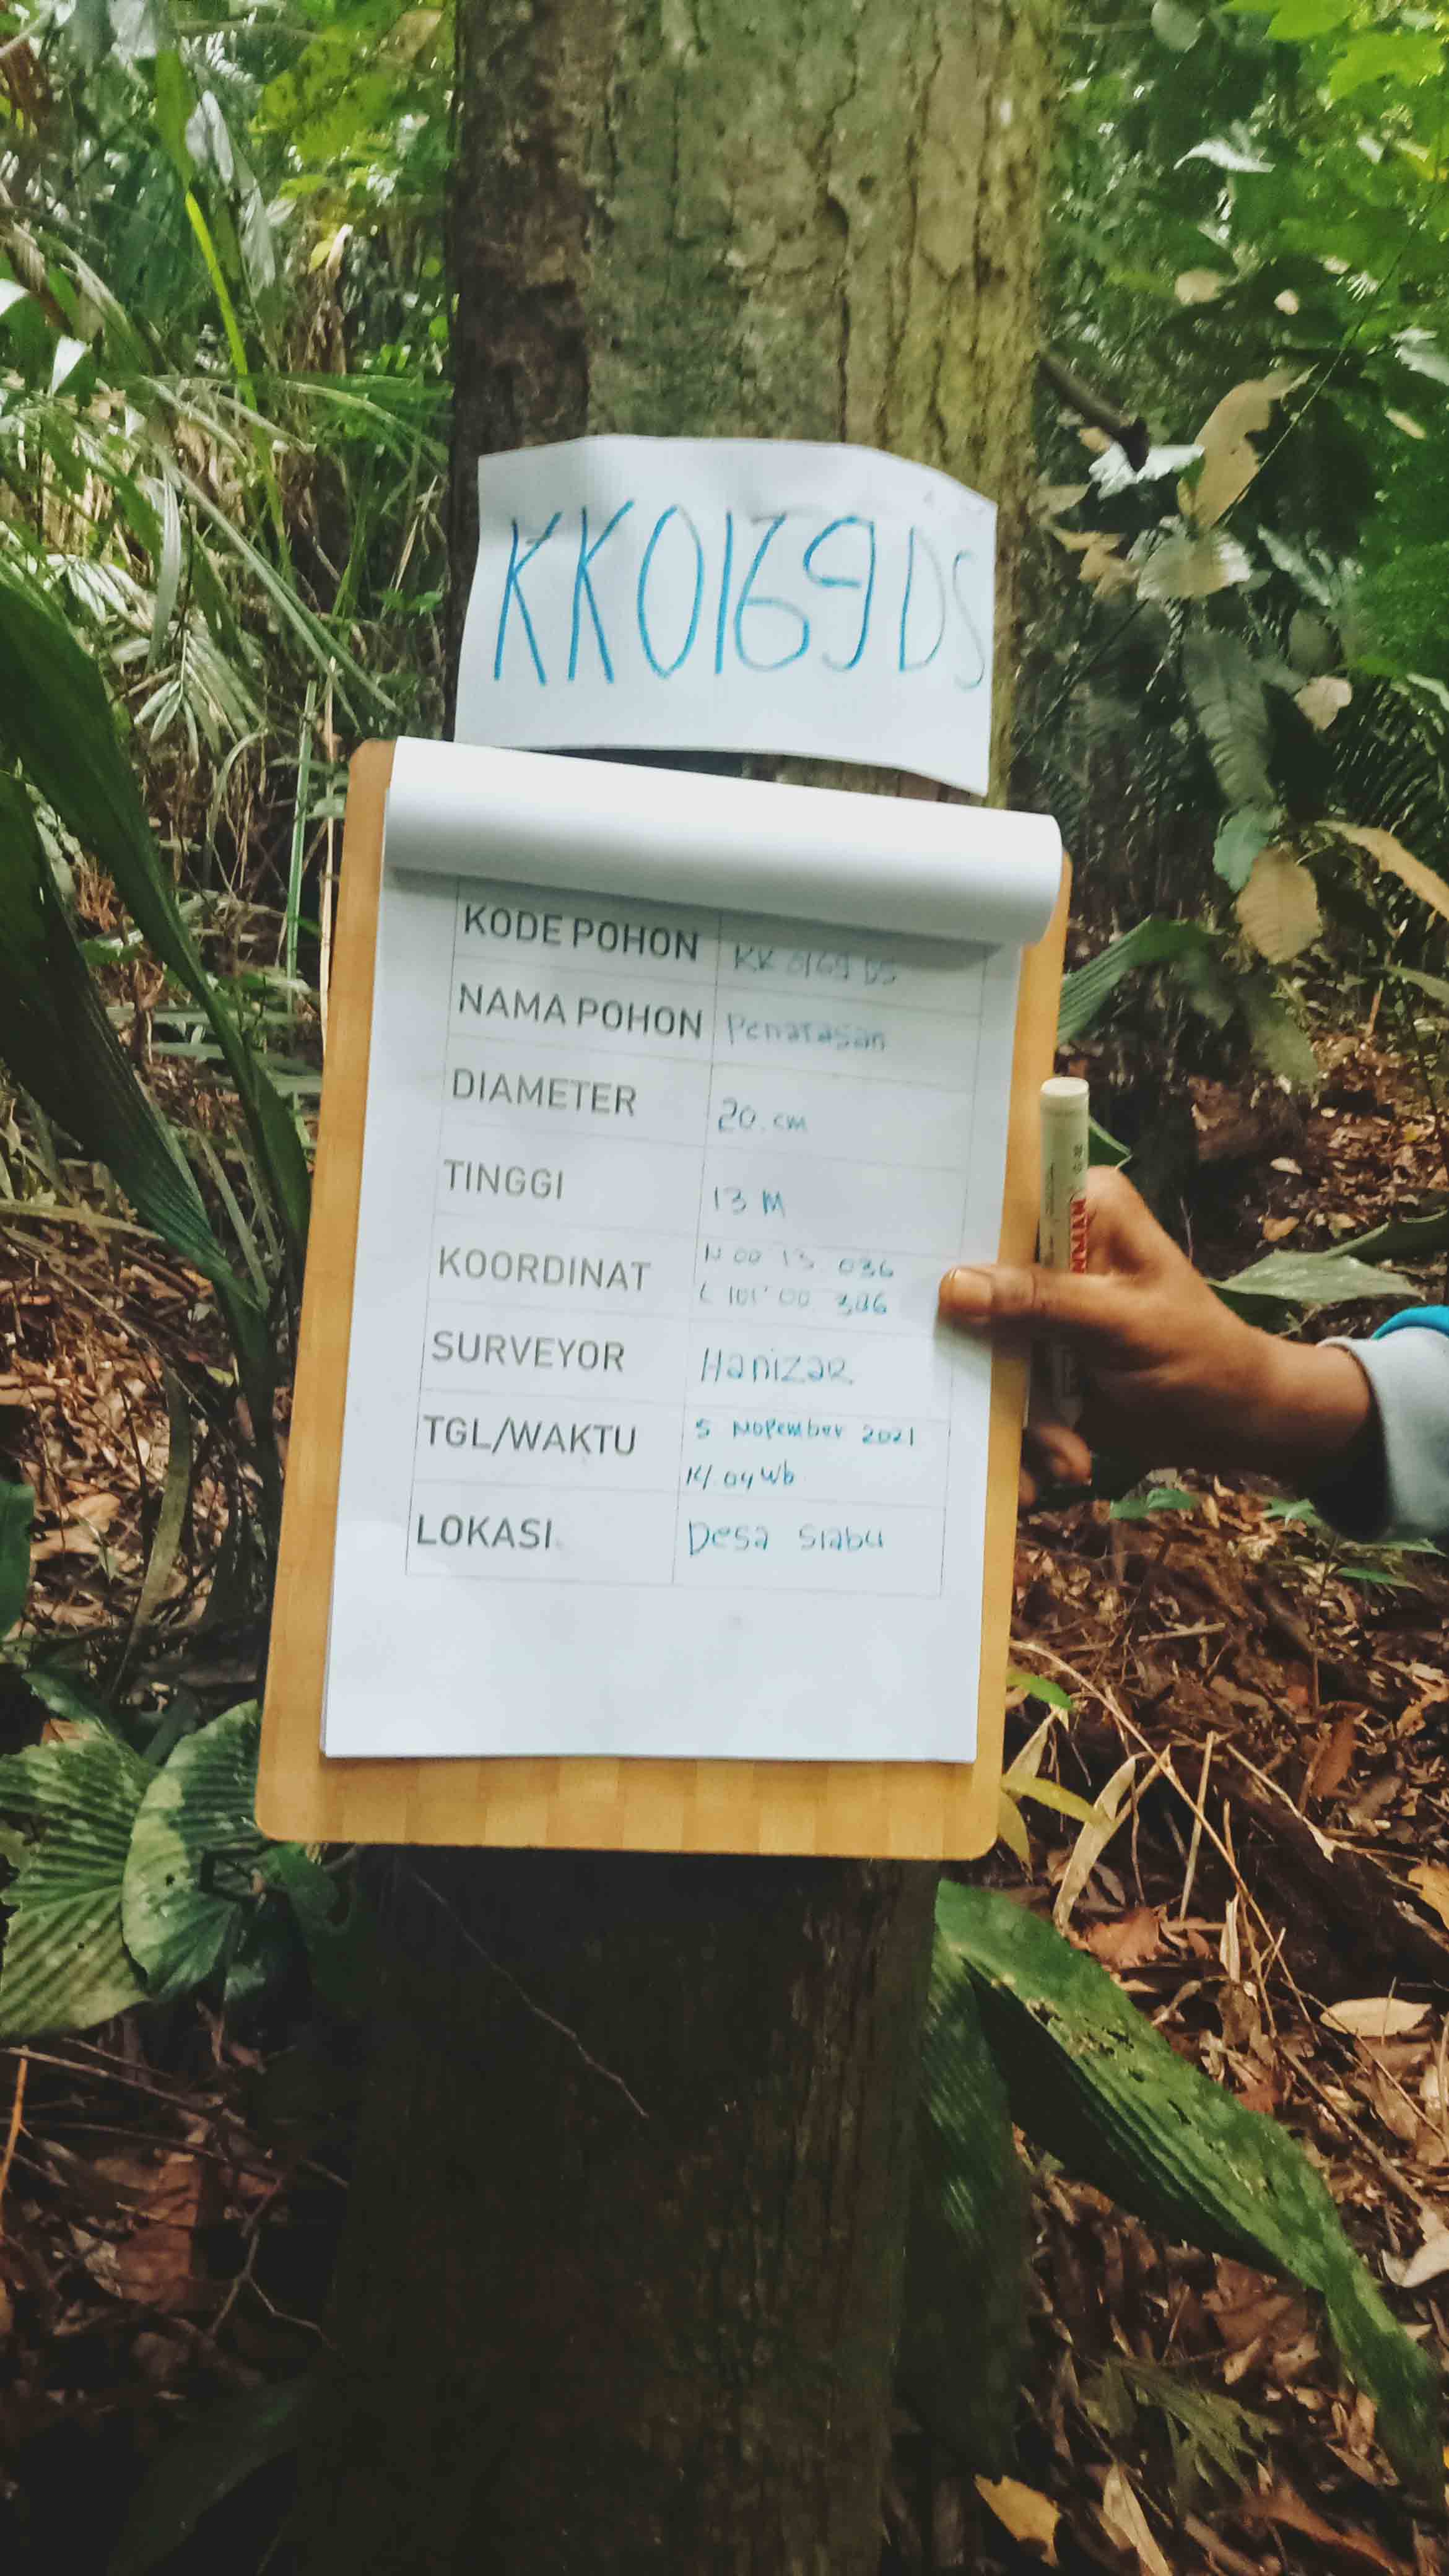 KK0169DS
KODE POHON KK 0169 DS
NAMA POHON Penarasan
DIAMETER 20 cm
TINGGI 13 M
KOORDINAT N 00 13 036
E 101° 00 386
SURVEYOR Hanizar
TGL/WAKTU 5 Nopember 2021
14.04 Wb
LOKASI Desa Siabu